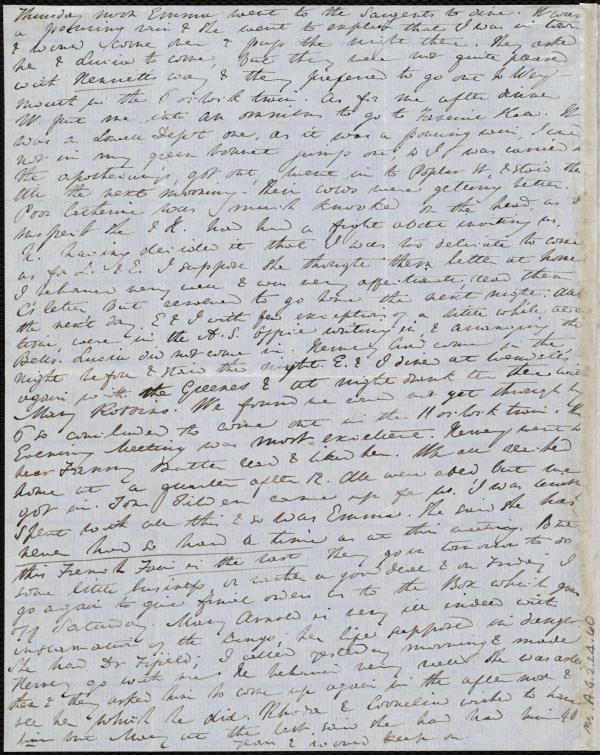 Thursday noon Emma went to the Sargents to dine. It was
a pouring rain & she went to explain that I was in town
& would come over & pass the night there. They asked
her & Louisa to come, but they were not quite pleased
with Henrietta's way & they preferred to go out to Wey-
mouth in the 5 o'clock train. As for me after dinner
W put me into an omnibus to go to It
was a Lowell Depot one, as it was a pouring rain, I could
not in my green bonnet jump out, so I was carried to
the apothecary's, got out & went in to Poplar St, & staid there
till the next morning. Their colds were getting better.
Poor Catherine was much knocked on the head as I
suspect she & H. had had a fight about inviting us,
H. having decided it that I was too delicate to come,
as for L. & E. I suppose she thought them better at home.
I behaved very well & was very affectionate, read them
C's letter but resolved to go home the next night. All
the next day, E & I with few exceptions of a little while, at a
time were in the A.S. Office writing in & arranging the
Bells. Louisa did not come in. Henry had come in the
night before & staid the night. E. & I dined at Wendell's
again with the Greenes & at night drank tea there with
Mary Robbins. We found we could not get through by
5 so concluded to come out in the 11 o'clock train. The
Evening Meeting was most excellent. Henry went to
hear Fanny Butler read & liked her. We all reached
home at a quarter after 12. All were abed but we
got in. Tom Tilden came up for us. I was
spent with all this & so was Emma. She said she has
never had so hard a time as at this meeting. But
this French Fair is the last. They go in tomorrow to do
some little business, or rather a good deal & on Friday I
go again to give final orders as to the Box which goes
off Saturday. Mary Arnold is very ill indeed with
inflammation of the lungs, her life supposed in danger
She had Dr Fifield; I called yesterday morning & made
Henry go with me. He behaved very well. She was asleep
then & they asked him to come up again in the afternoon &
see her which he did. Rhoda & Cornelia wished to have
him but Mary at the last said she had had him 40
years & would keep on.
Ms. A.9.2.24.60